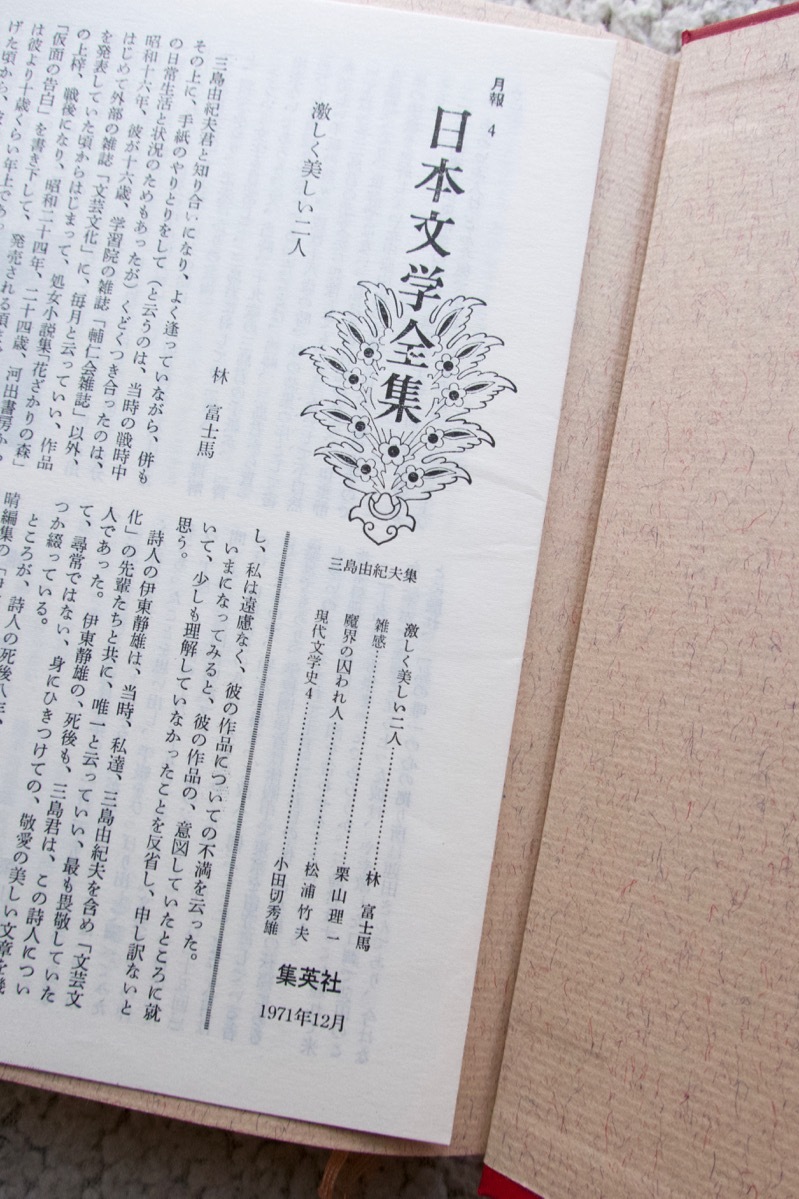 月報 4
日本文学全集
三島由紀夫集
激しく美しい二人………林 富士馬
雑感………栗山理一
魔界の囚われ人………松浦竹夫
現代文学史4………小田切秀雄
集英社
1971年12月
激しく美しい二人
林 富士馬
三島由紀夫君と知り合いになり、よく逢っていながら、併も
その上に、手紙のやりとりをして(と云うのは、当時の戦時中
の日常生活と状況のためもあったが)くどくつき合ったのは、
昭和十六年、彼が十六歳、学習院の雑誌「輔仁会雑誌」以外、
はじめて外部の雑誌「文芸文化」に、毎月と云っていい、作品
を発表していた頃からはじまって、処女小説集「花ざかりの森」
の上梓、戦後になり、昭和二十四年、二十四歳、河出書房から
「仮面の告白」を書き下して、発売される頃
は彼より十歳くらい年上であ
げた頃から、
し、私は遠慮なく、彼の作品についての不満を云った。
いまになってみると、彼の作品の、意図していたところに就
いて、少しも理解していなかったことを反省し、申し訳ないと
思う。
詩人の伊東静雄は、当時、私達、三島由紀夫を含め「文芸文
化」の先輩たちと共に、唯一と云っていい、最も畏敬していた
人であった。伊東静雄の、死後も、三島君は、この詩人につい
て、尋常ではない、身にひきつけての、敬愛の美しい文章を幾
つか綴っている。
ところが、詩人の死後八年、
晴編集の